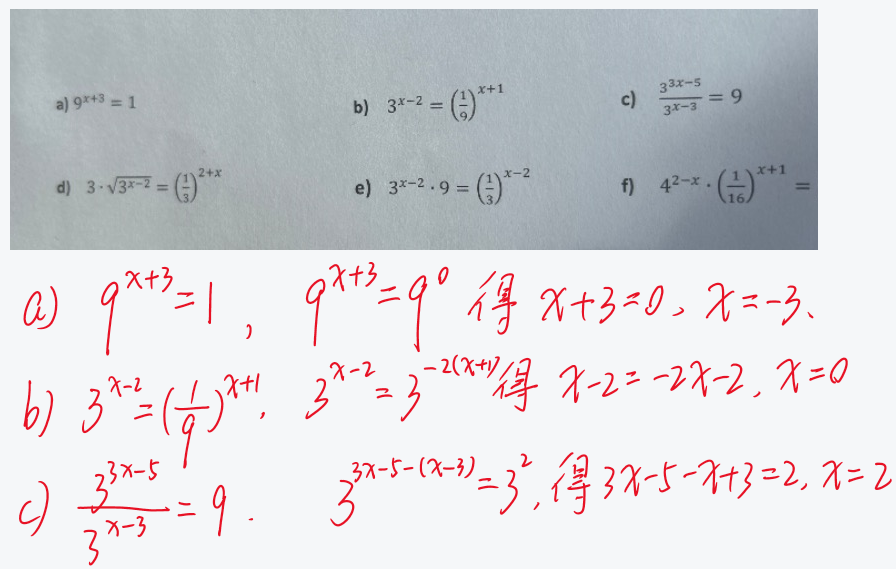 a) 9^{x+3} = 1 b) 3^{x-2} = (1/9)^{x+1} c) 3^{3x-5}/3^{x-3} = 9
d) 3·√(3^{x-2}) = (1/3)^{2+x} e) 3^{x-2}·9 = (1/3)^{x-2} f) 4^{2-x}·(1/16)^{x+1} =
a) 9^{x+3}=1, 9^{x+3}=9^0 得 x+3=0、x=-3、
b) 3^{x-2}=(1/9)^{x+1}, 3^{x-2}=3^{-2(x+1)} 得 x-2=-2x-2, x=0
c) 3^{3x-5}/3^{x-3}=9. 3^{3x-5-(x-3)}=3^2, 得 3x-5-x+3=2, x=2